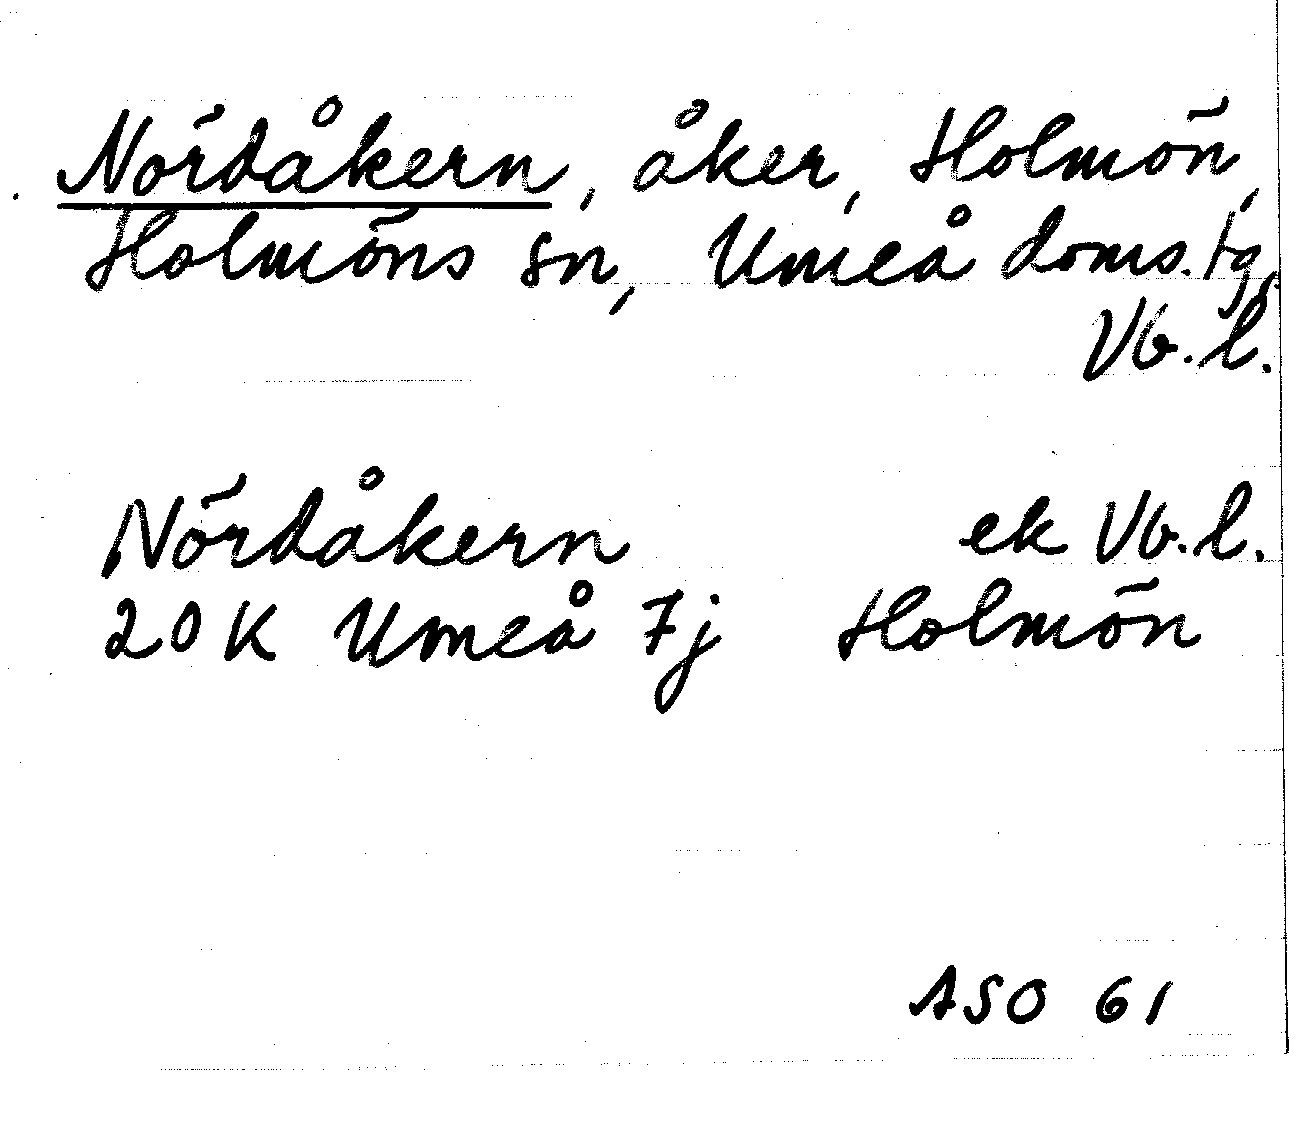 Nördåkern, åker, Holmön,
Holmöns sn, Umeå doms.tg,
Vb.l.
Nördåkern ek Vb.l.
20 K Umeå 7j Holmön
ASO 61